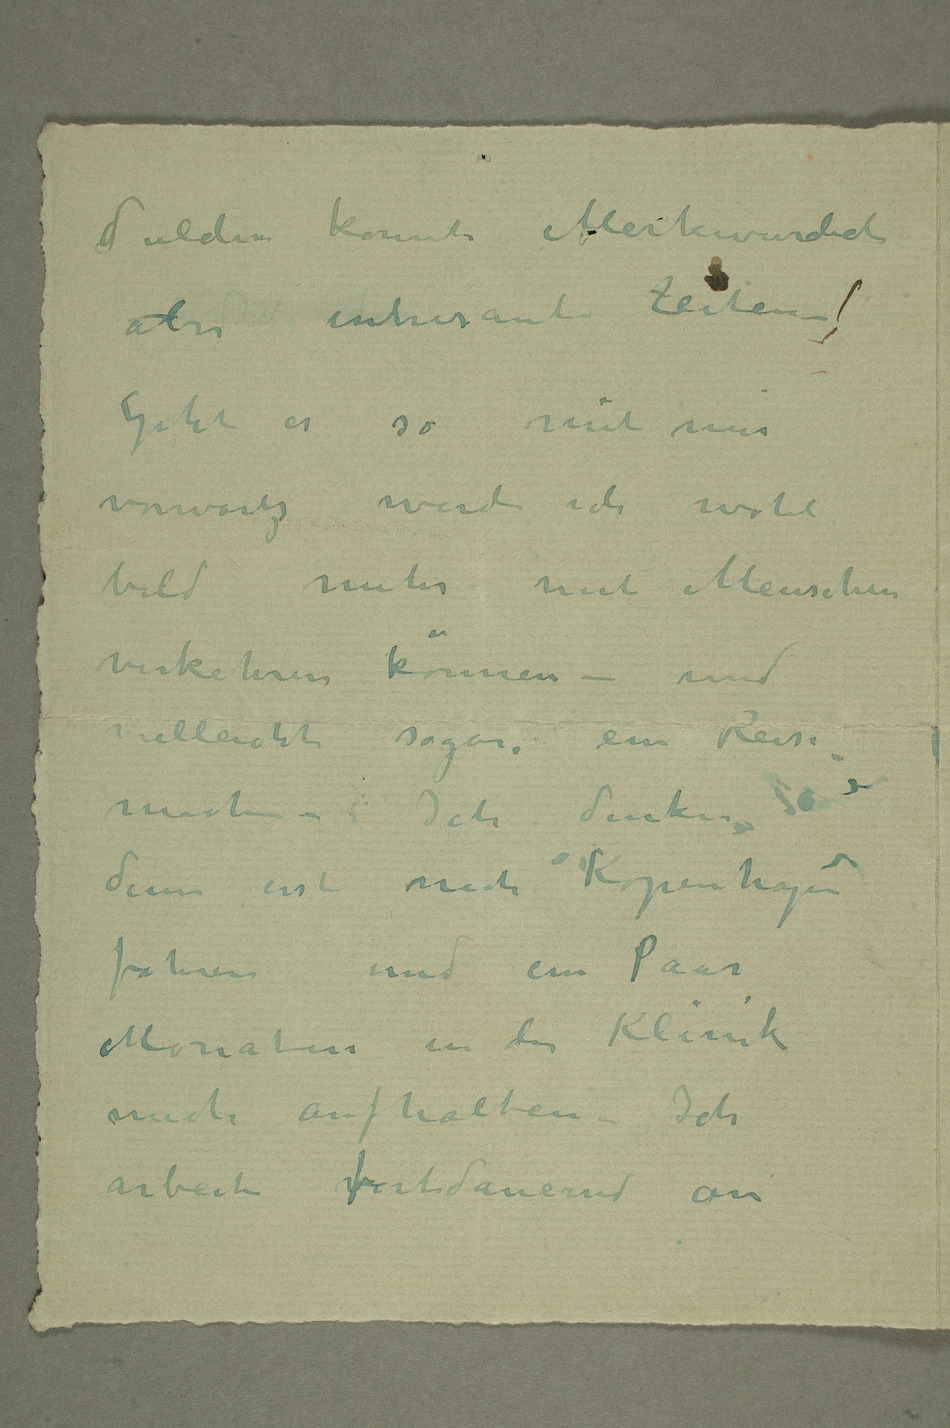 dulden konnte Merkwurdich
aber intresante Zeiten!
Geht es so mit mir
vorwärtz werde ich wohl
bald mehr mit Menschen
verkehren können – und
vielleicht sogar ein Reise
machen – Ich denke
denn erst nach Kopenhagen
fahren und ein Paar
Monaten in der Klinik
mich aufhalten – Ich
arbeite fortdauernd an